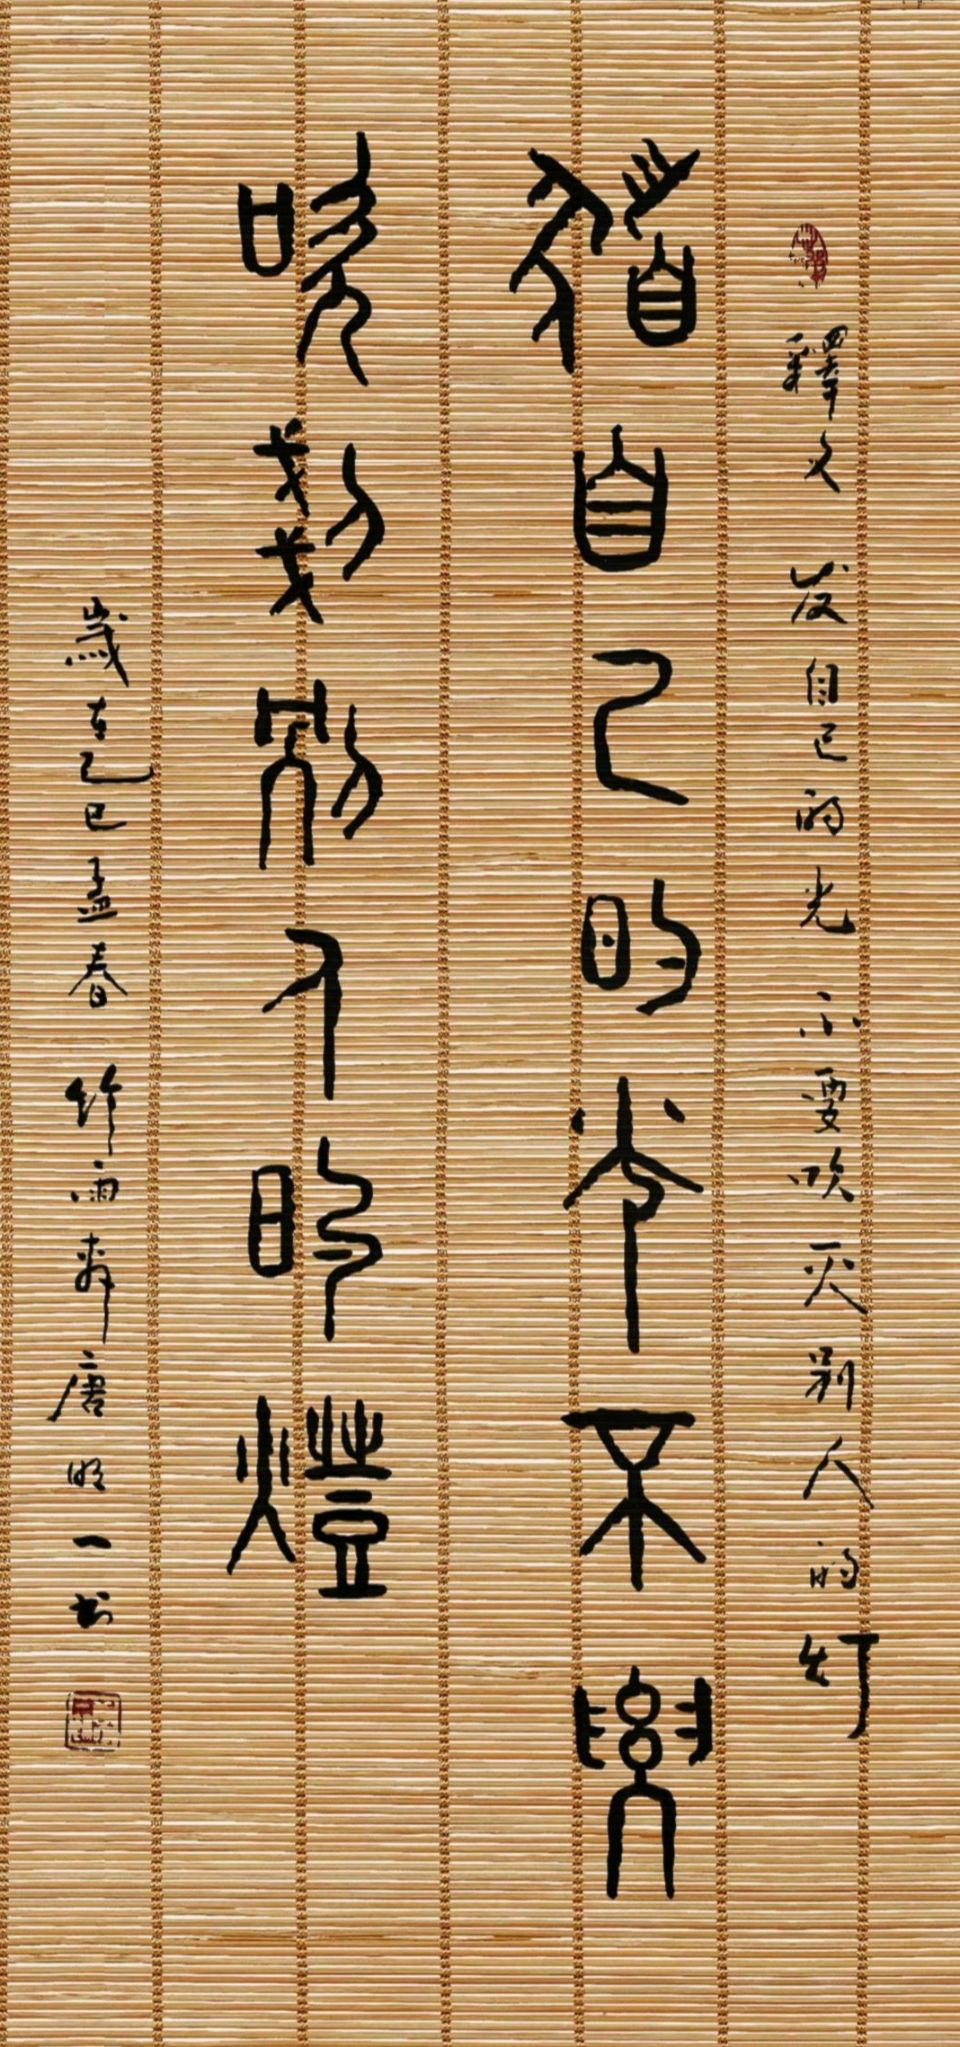 釋文 发自己的光 不要吹灭别人的灯
發自己的光不要
吹滅別人的燈
歲在乙巳孟春 竹雨斋唐明一书